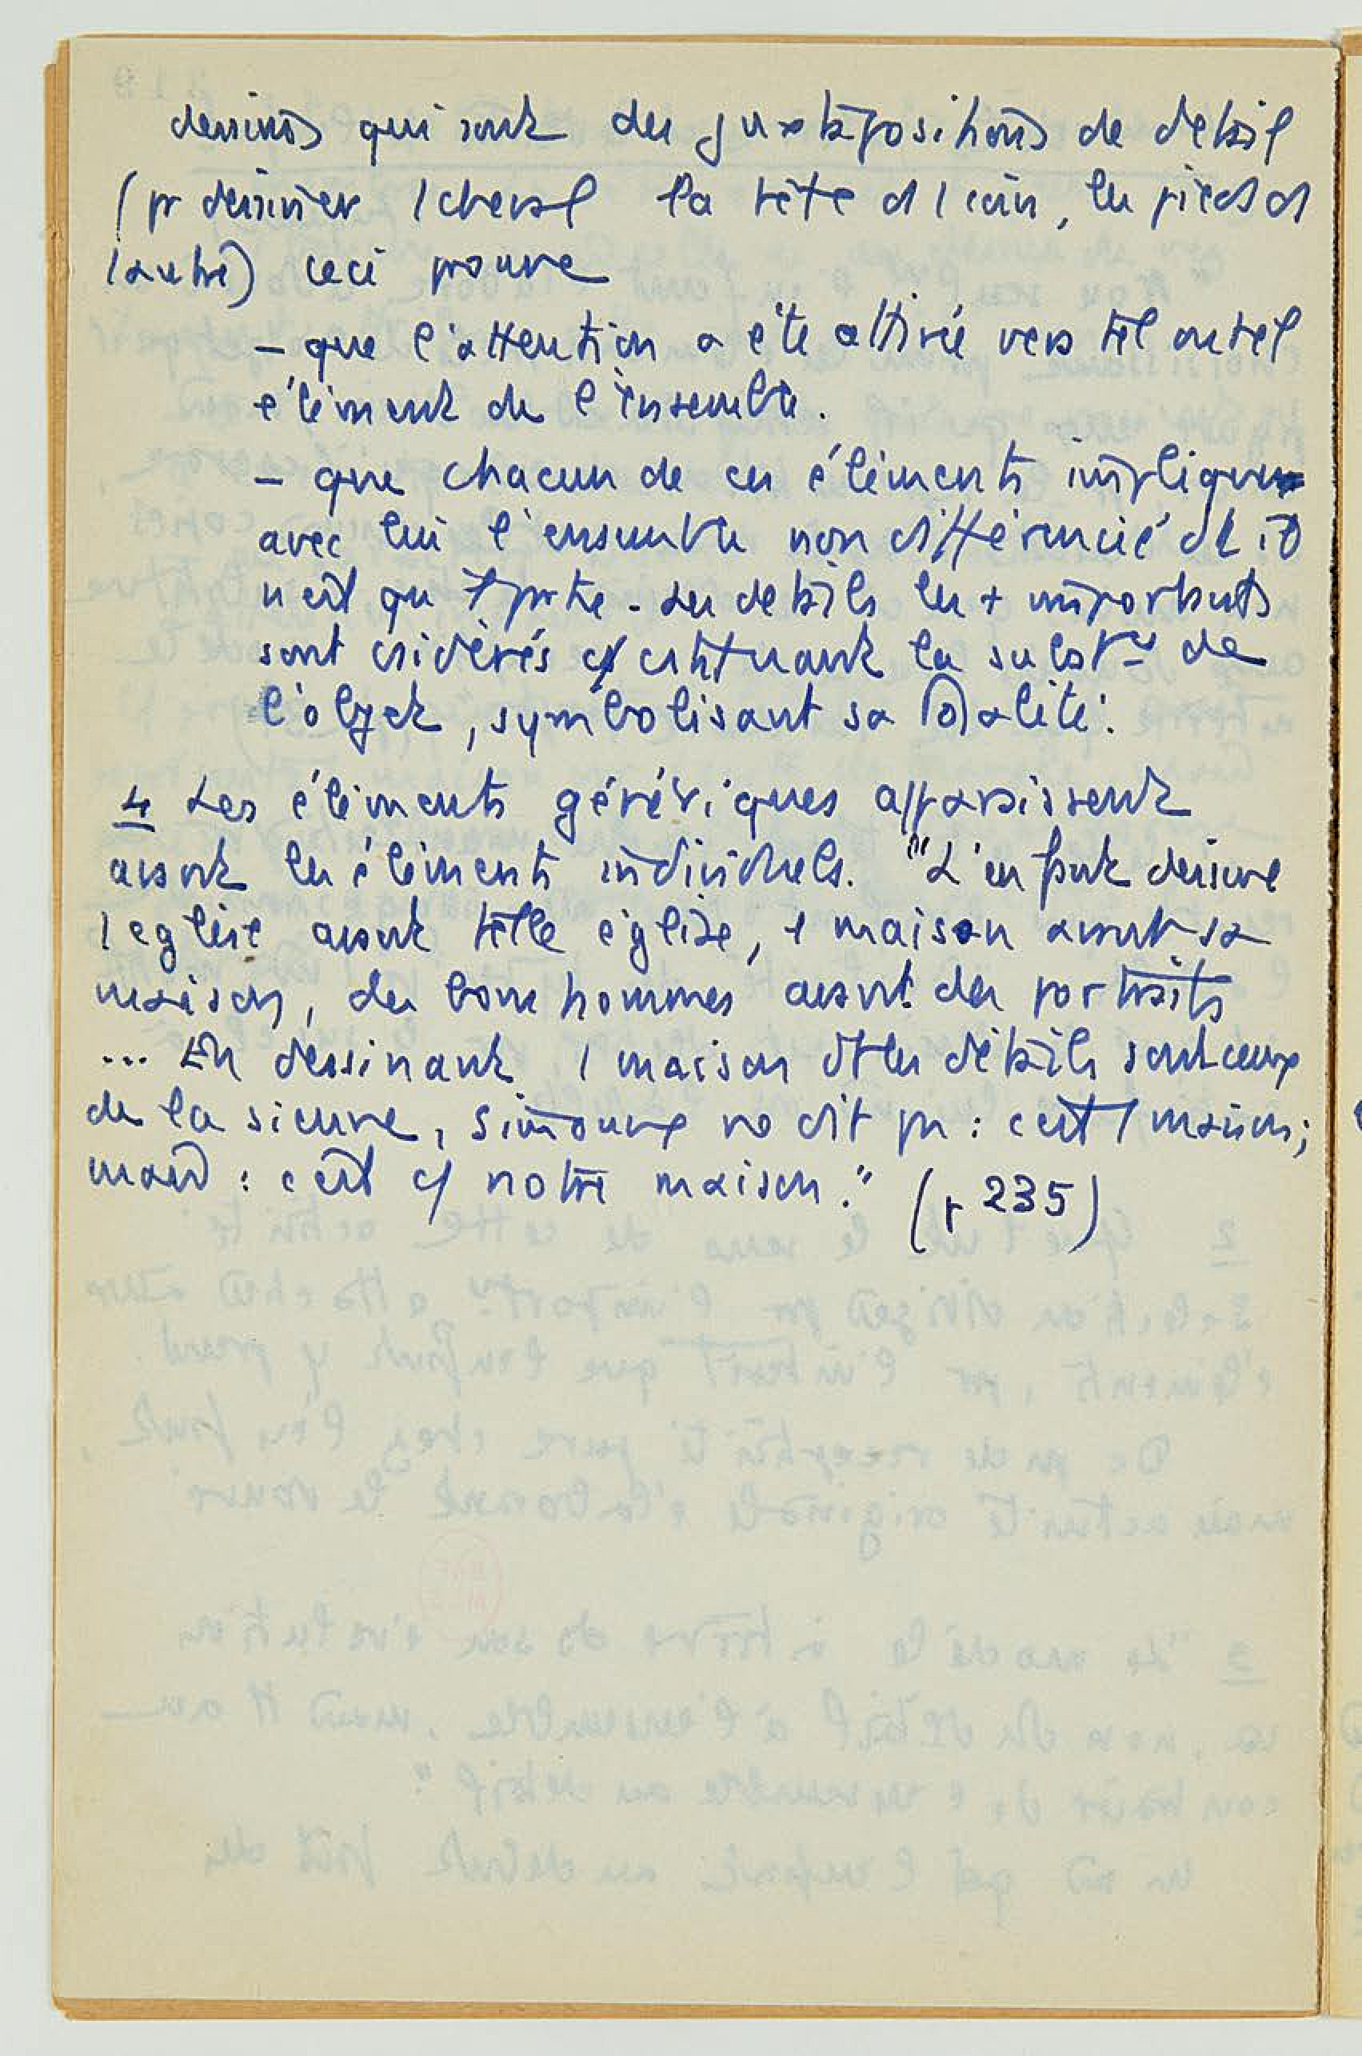 dessins qui sont des juxtapositions de détail
(pr dessiner 1 cheval la tête d 1 coin, les pieds d
1 autre) ceci prouve
- que l'attention a été attirée vers tel ou tel
élément de l'ensemble.
- que chacun de ces éléments implique
avec lui l'ensemble non différencié dt il
n'est qu'1 partie. Les détails les + importants
sont csidérés c/ cstituant la subst^ce de
l'objet, symbolisant sa totalité.
4 Les éléments génériques apparaissent
avant les éléments individuels. "L'enfant dessine
1 église avant telle église, 1 maison avant sa
maison, des bonshommes avant des portraits
... En dessinant 1 maison dt les détails sont ceux
de la sienne, Simonne ne dit pas : c'est 1 maison;
mais : c'est c/ notre maison." (p 235)